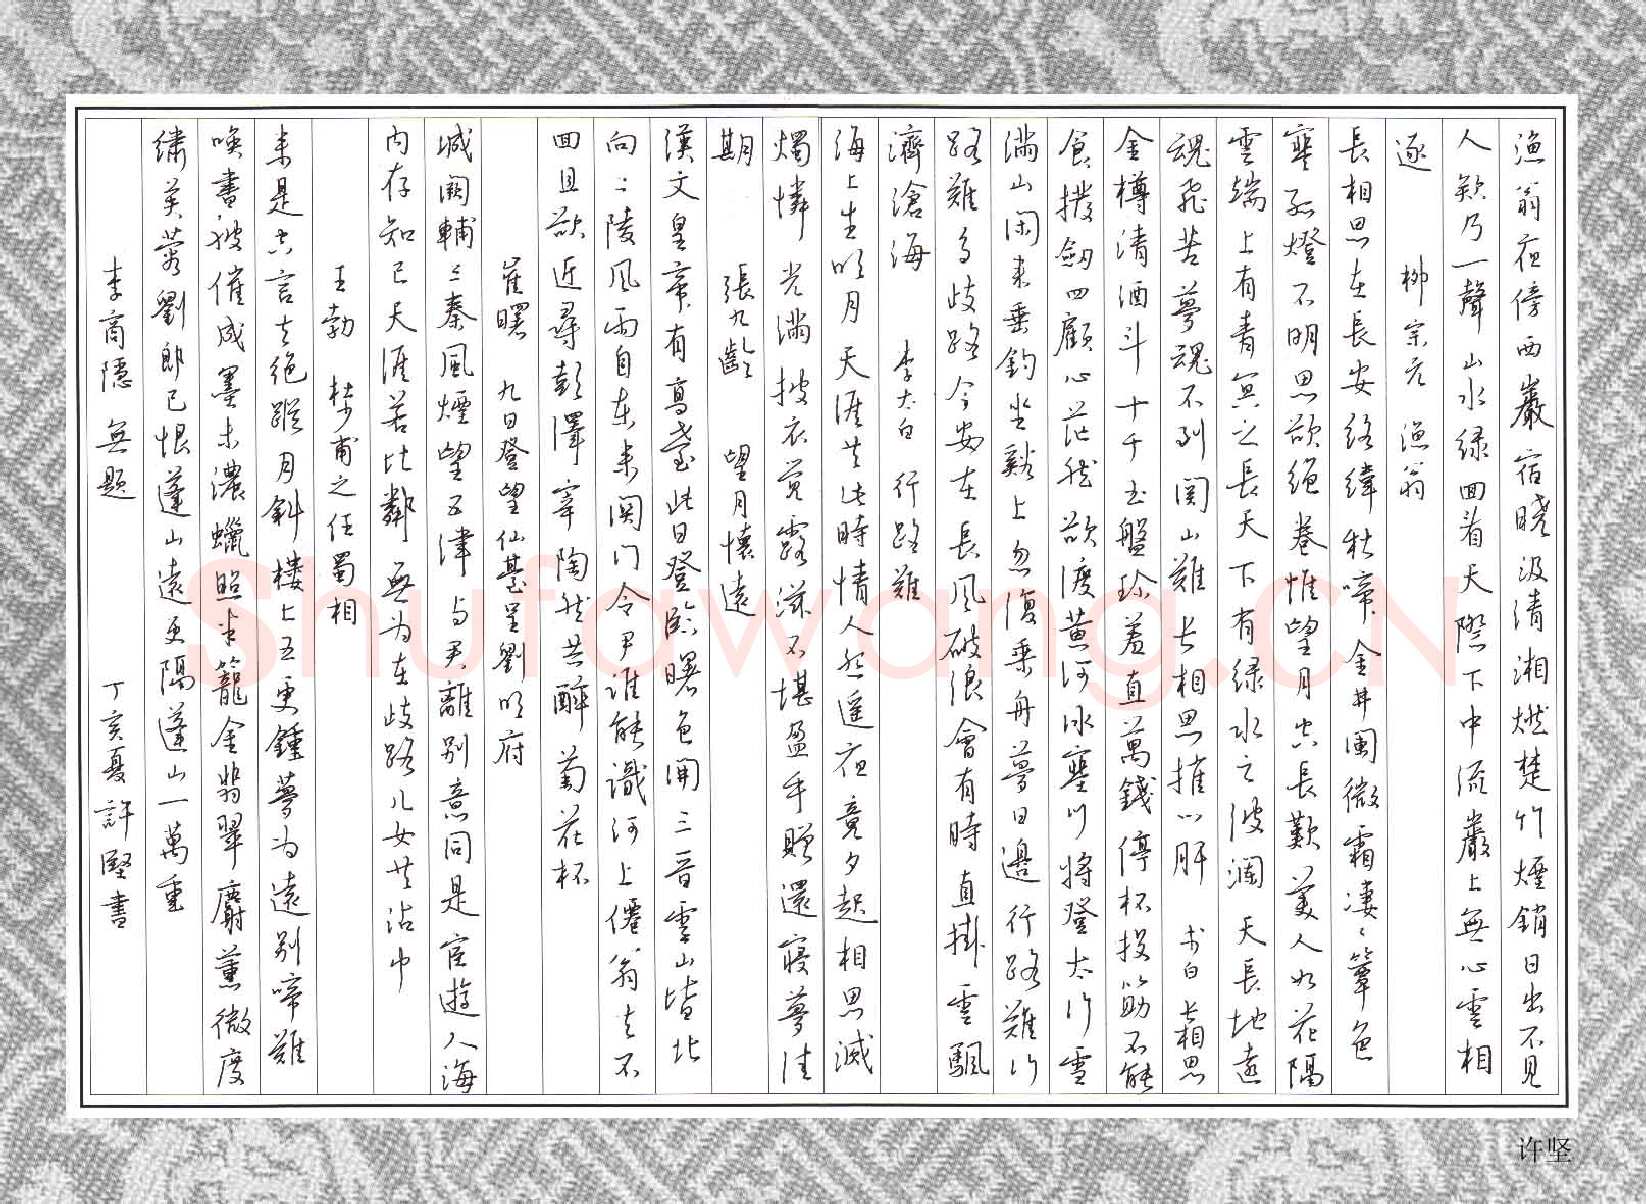 漁翁夜傍西巖宿曉汲清湘燃楚竹煙銷日出不見
人欸乃一聲山水緑回看天際下中流巖上無心雲相
逐 柳宗元 漁翁
長相思在長安絡緯秋啼金井闌微霜凄〻簟色
寒孤燈不明思欲絕卷帷望月空長歎美人如花隔
雲端上有青冥之長天下有緑水之波瀾天長地遠
魂飛苦夢魂不到関山難長相思摧心肝 李白長相思
金樽清酒斗十千玉盤珍羞直萬錢停杯投筯不能
食拔劍四顧心茫然欲渡黄河冰塞川將登太行雪
滿山闲来垂釣坐谿上忽復乘舟夢日邊行路難行
路難多歧路今安在長風破浪會有時直掛雲颿
濟滄海 李太白 行路難
海上生明月天涯共此時情人怨遥夜竟夕起相思滅
燭憐光滿披衣覺露滋不堪盈手贈還寢夢佳
期 張九齡 望月懷遠
漢文皇帝有高臺此日登臨曙色開三晋雲山皆北
向二陵風雨自東来関门令尹誰能識河上僊翁去不
回且欲近尋彭澤宰陶然共醉菊花杯
崔曙 九日登望仙臺呈劉明府
城闕輔三秦風煙望五津与君離别意同是宦遊人海
内存知己天涯若比鄰無为在歧路儿女共沾巾
王勃 杜甫之任蜀相
来是空言去绝蹤月斜樓上五更鍾夢为遠别啼難
唤書被催成墨未濃蠟照半籠金翡翠麝薰微度
繡芙蓉劉郎已恨蓬山遠更隔蓬山一萬重
李商隱 無題 丁亥夏許堅書
Shufawang.CN
许坚